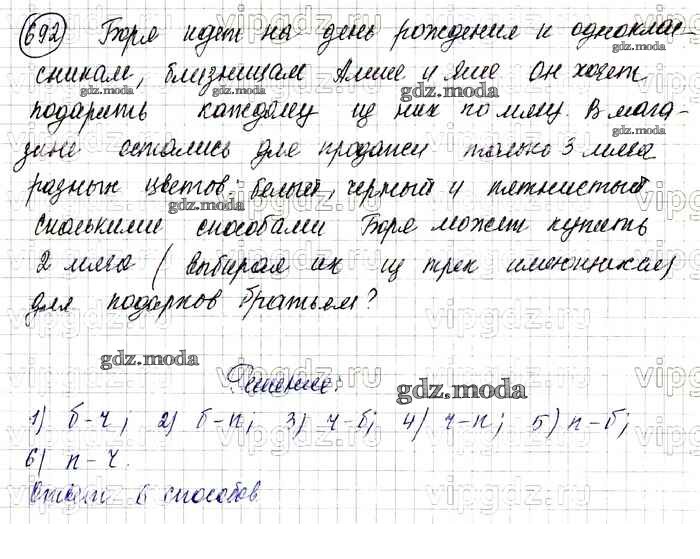 692 Боря идет на день рождения к однокла-
ссникам, близнецам Алише и Яше Он хочет
подарить каждому из них по мячу. В мага-
зине остались для продажи только 3 мяча
разных цветов: белый, черный и пятнистый
сколькими способами Боря может купить
2 мяча (выбирая их из трех имеющихся)
для подарков братьям?
Решение:
1) б-ч; 2) б-п; 3) ч-б; 4) ч-п; 5) п-б;
6) п-ч.
Ответ: 6 способов
vipgdz.ru
gdz.moda